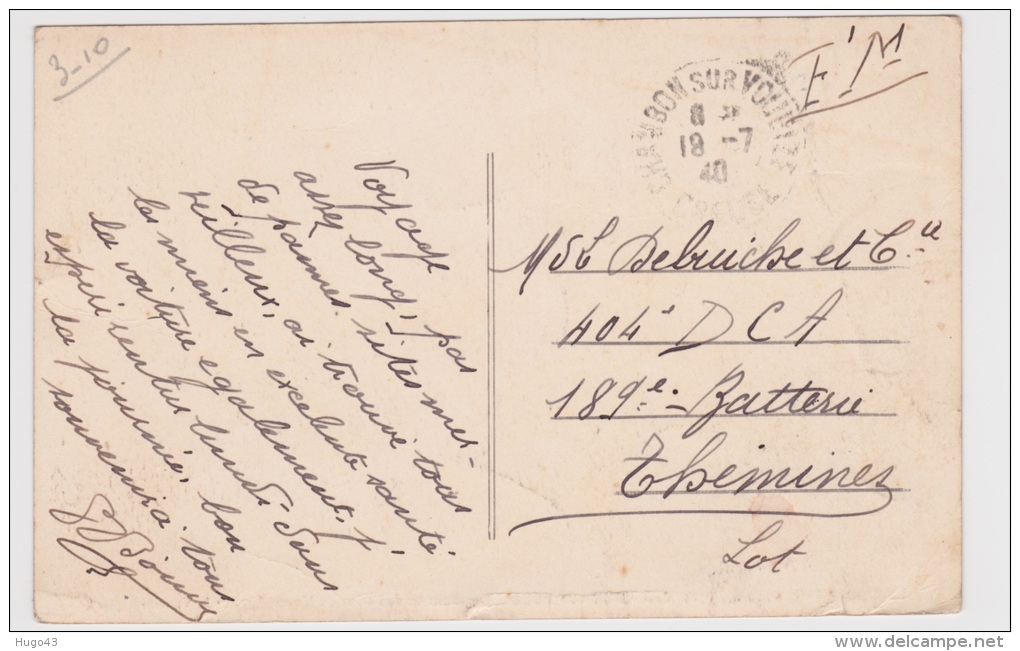 3-10
F M
CHAMBON SUR VOUEIZE
8 *
18 -7
40
CREUSE
Voyage
assez long, pas
de pannes. sites mer-
veilleux, ai trouvé tous
les miens en excelente santé
la voiture egalement, j'
espère rentrer lundi dans
la journée, bon
souvenir a tous
MdL Debruiche et Cie
404e D C A
189e Batterie
Themines
Lot
Hugo43
www.delcampe.net